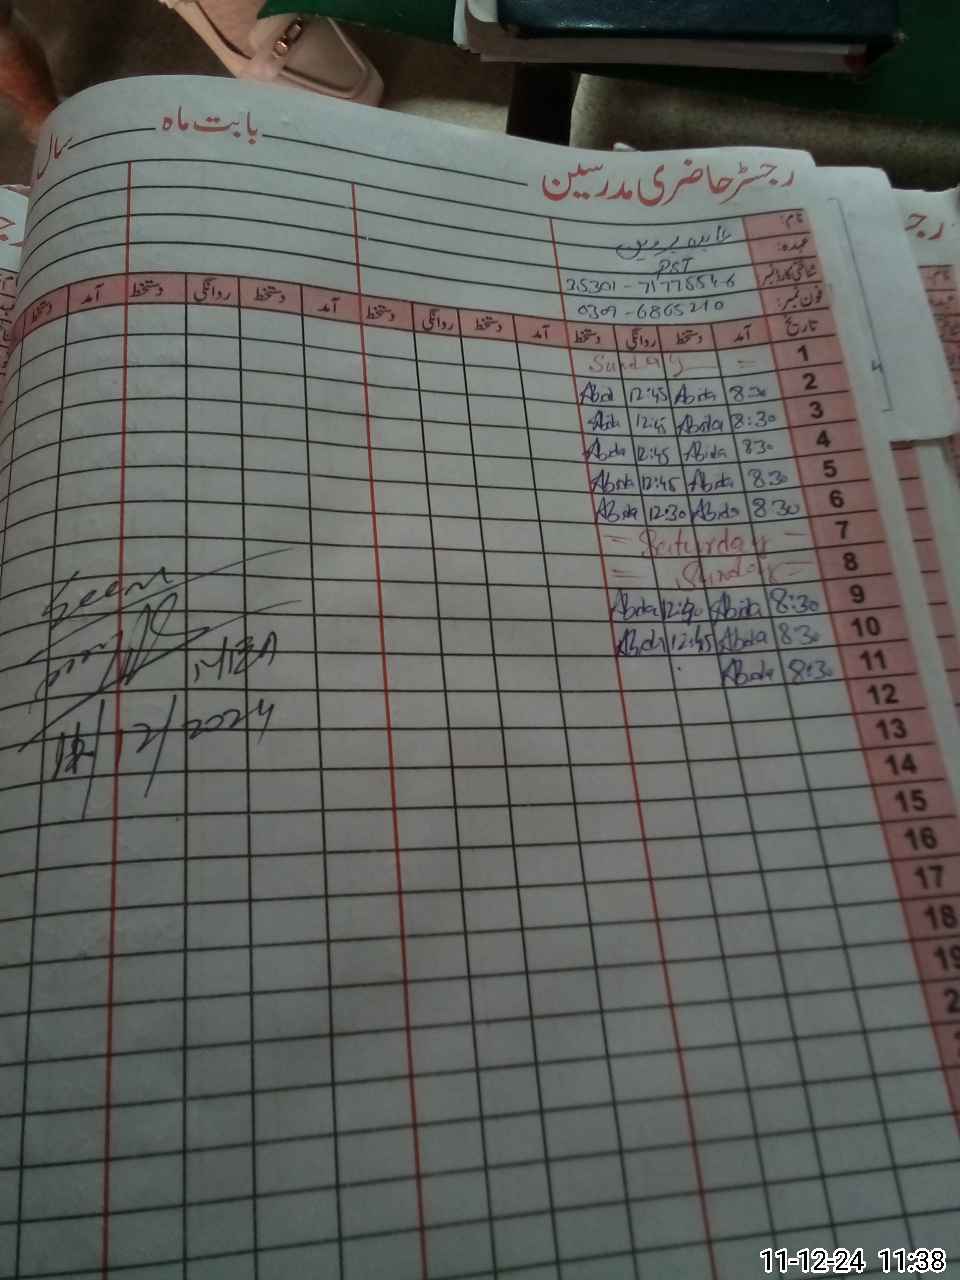 رجسٹر حاضری مدرسین بابت ماہ سال
نام: عابدہ پروین
عہدہ: PST
شناختی کارڈ نمبر
فون نمبر: 0309-6865210
تاریخ آمد دستخط روانگی دستخط آمد دستخط روانگی دستخط آمد دستخط روانگی دستخط آمد دستخط
1 Sunday
2 8:30 Abida 12:45
3 8:30 Abida 12:45 Abida
4 8:30 Abida 12:45 Abida
5 8:30 Abida 12:45 Abida
6 8:30 Abida 12:30 Abida
7 = Saturday =
8 = Sunday =
9 8:30 Abida Abida
10 8:30 Abida 12:45 Abida
11 8:30 Abida
12
13
14
15
16
17
18
19
Seen
12/2024
رجسٹر
11-12-24 11:38